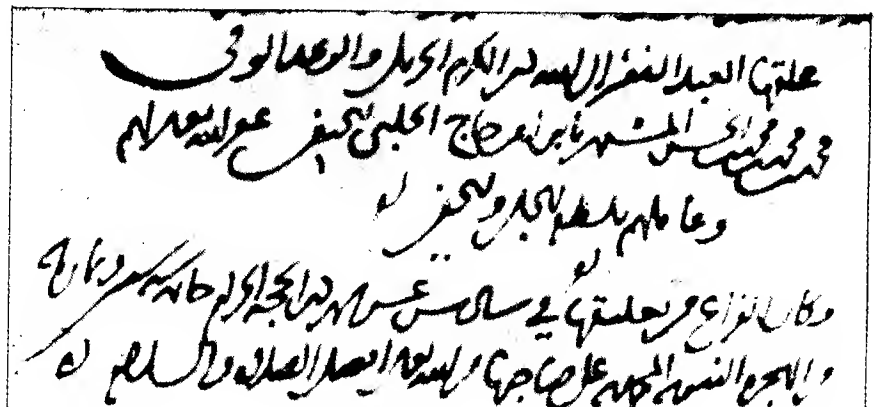 علقها العبد الفقير الى الله ذي الكرم الجزيل والوعد الوفي
محمد بن محمد بن محمد بن الحسن المشهور بابن امير حاج الحلبي الحنفي غفر الله تعالى لهم
وعاملهم بلطفه الجلي والخفي
وكان الفراغ من تعليقها في سادس عشر شهر ذي الحجة الحرام وثمانمائة
من الهجرة النبوية على صاحبها من الله تعالى افضل الصلاة والسلام